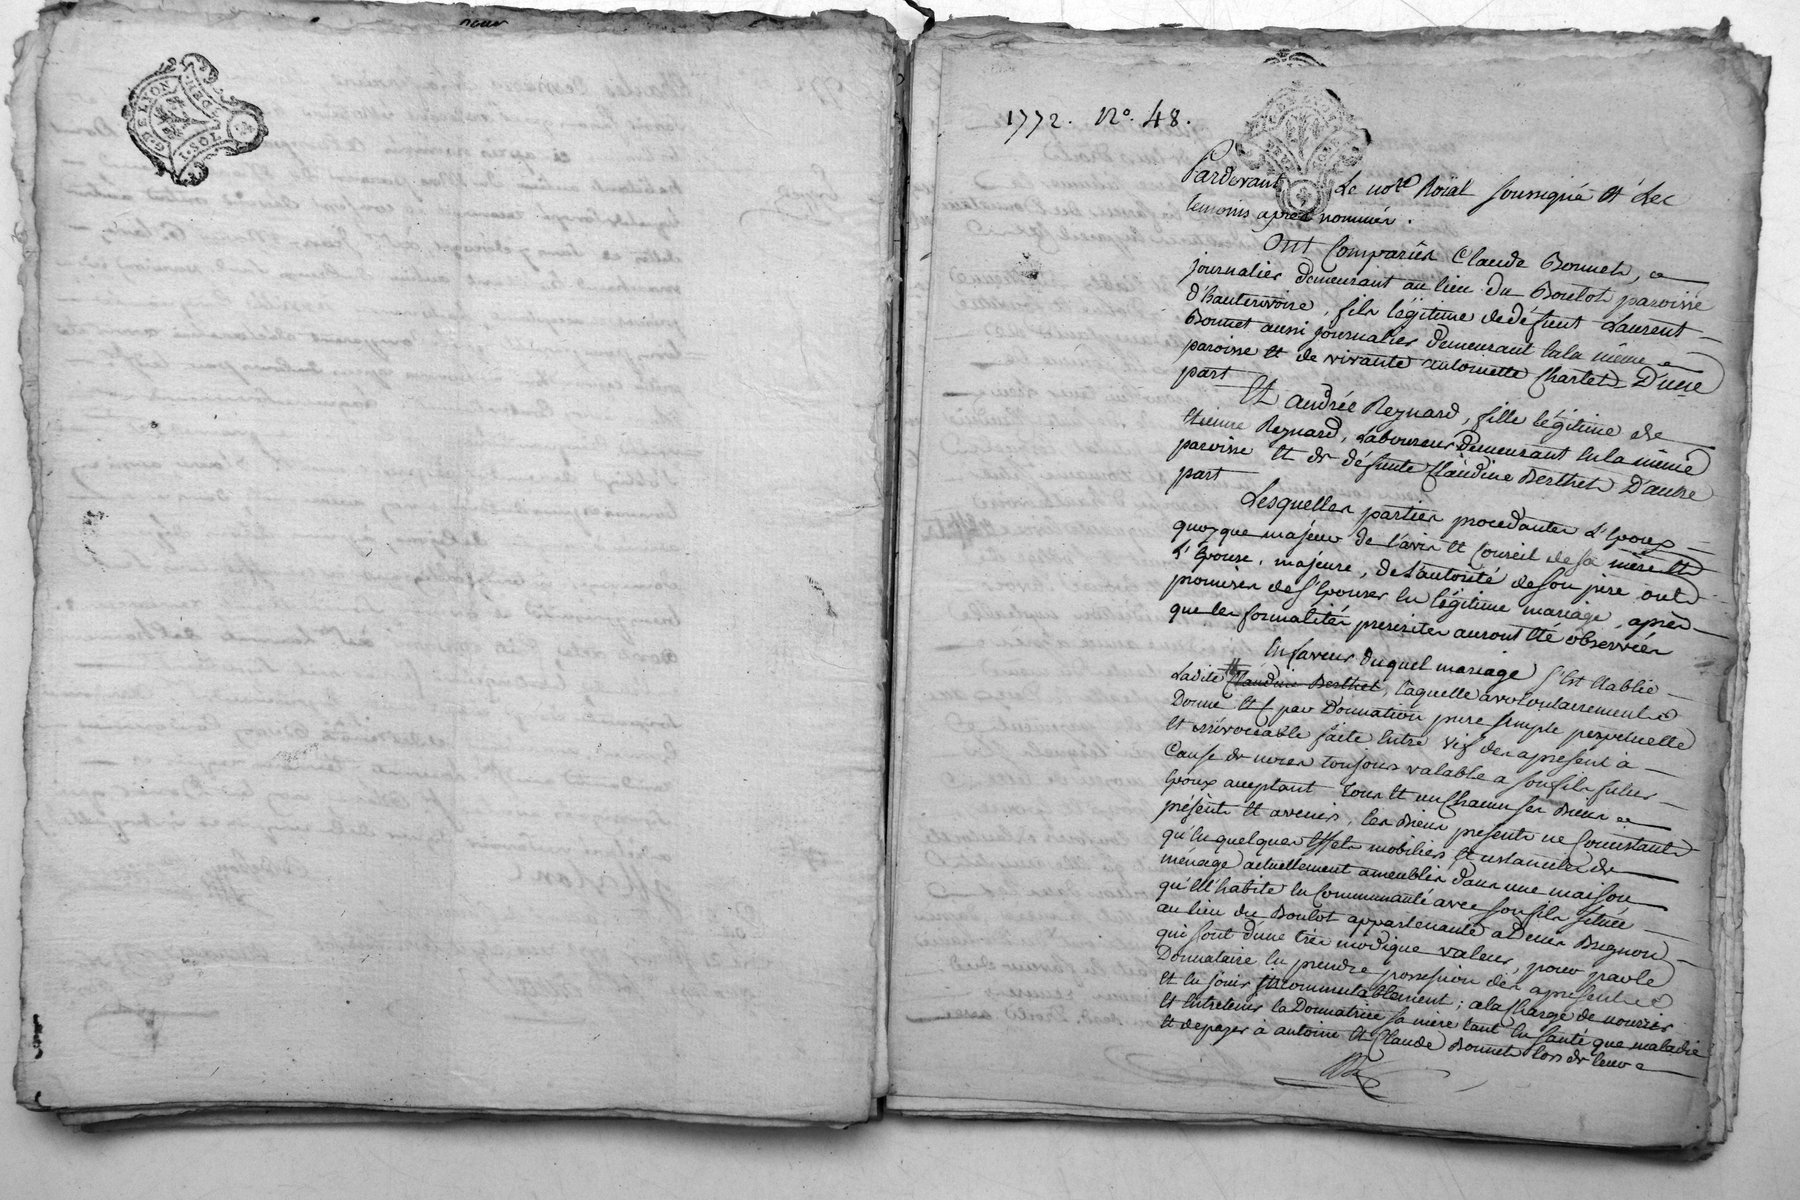 G. DE LYON
1772. N°. 48.
Pardevant Le no.re Roïal soussigné et Les
temoins après nommés.
Ont Comparûs Claude Bonnet,
journalier demeurant au lieu du Boulot paroisse
d'hauterivoire, fils légitime de défunt Laurent
Bonnet aussi journalier demeurant en la même
paroisse et de vivante antoinette Chartet D'une
part
Et andrée Reynard, fille légitime de
Etienne Reynard, Laboureur Demeurant en la même
paroisse et de défunte Claudine Berthet D'autre
part
Lesquelles parties procedantes L'Epoux
quoyque majeur de l'avis et Conseil de sa mere et
L'Epouse, majeure, de L'autorité de son pere ont
promises de S'Epouser en légitime mariage, après
que les formalités prescrites auront Eté observées
En faveur Duquel mariage S'Est Etablie
Ladite Claudine Berthet, laquelle a volontairement
Donné et par Donnation pure simple perpetuelle
et irrévocable faite Entre vifs des apresent a
Cause de noces toujours valable a son fils futur
Epoux acceptant tous et un Chacun ses Biens
présents et avenir, les Biens présents ne Consistants
qu'En quelques Effets mobiliers et ustanciles de
ménage actuellement ameublés dans une maison
qu'Elle habite En Communauté avec son fils située
au lieu du Boulot appartenante a Denis Bugnon
qui sont d'une très modique valeur, pour par le
Donnataire En prendre possession dès apresent
et En jouir incommutablement; a la Charge de nourrir
et Entretenir la Donnatrice sa mere tant En santé que maladie
et de payer à antoine et Claude Bonnet lors de leur